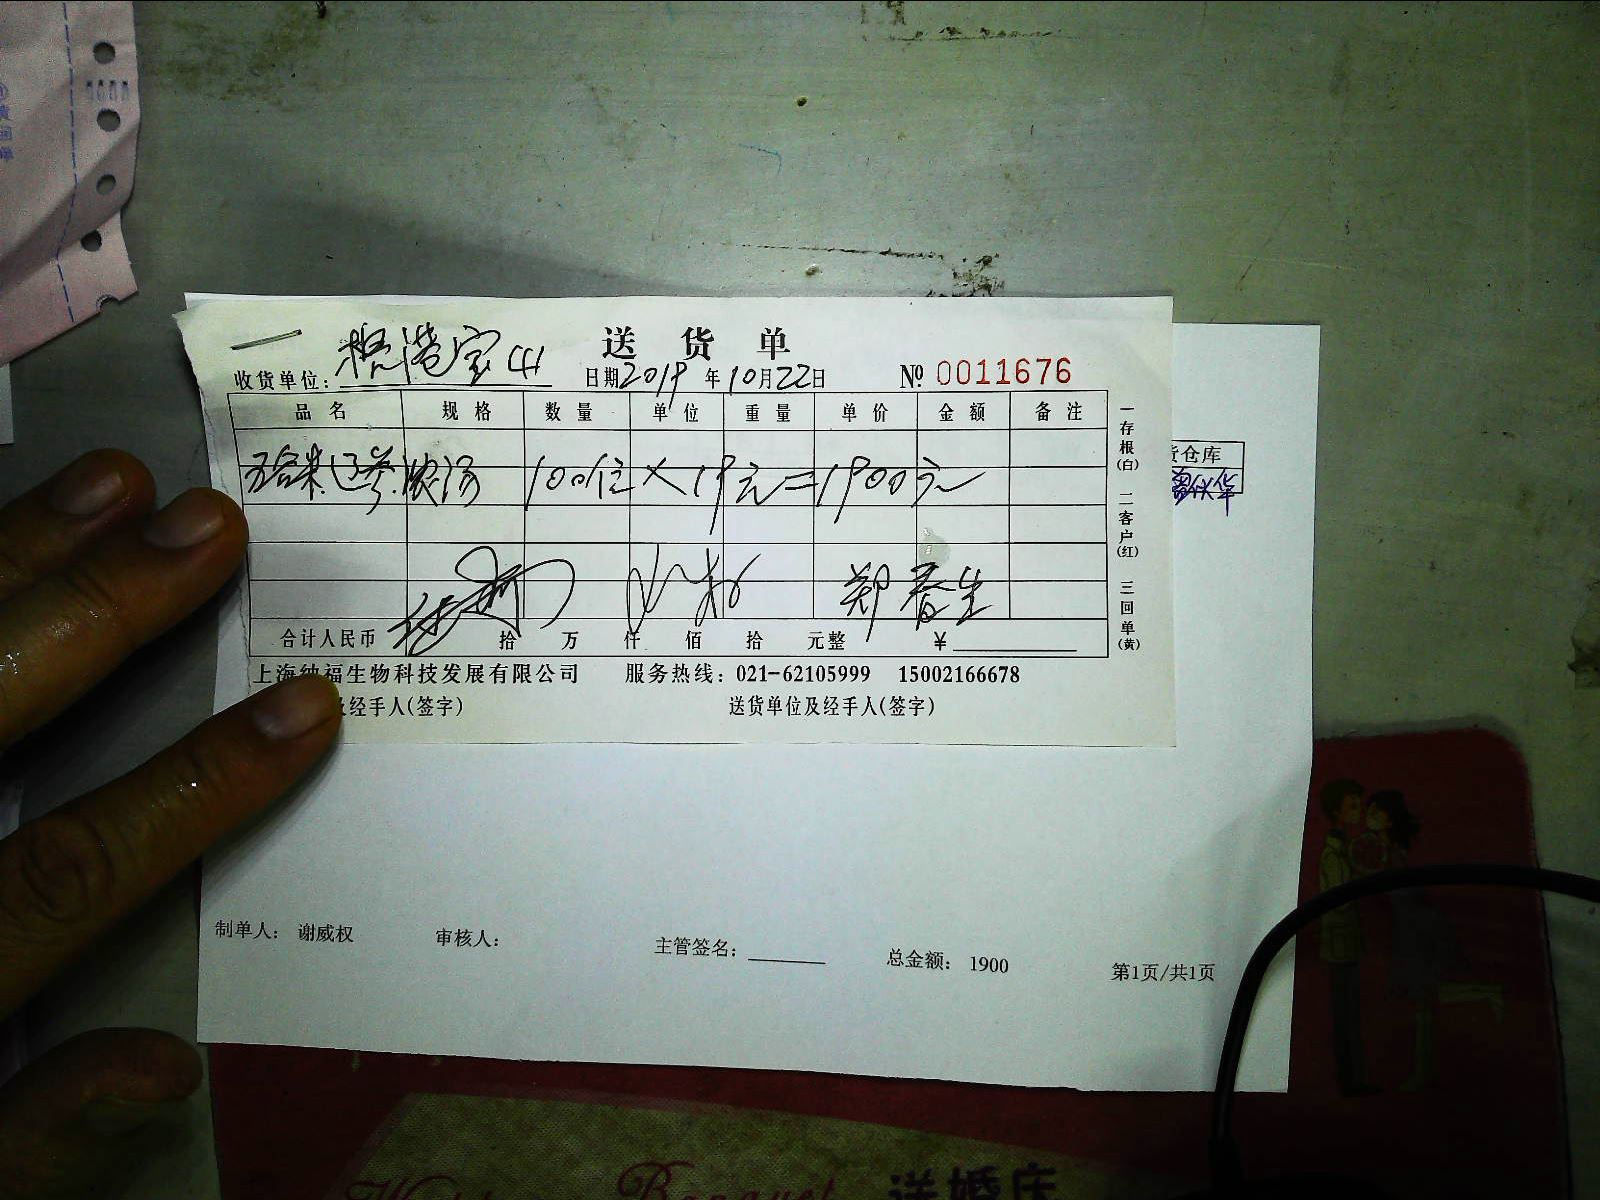 送货单
收货单位：
日期2019年10月22日
№ 0011676
品名 规格 数量 单位 重量 单价 金额 备注
五谷米辽参 浓汤 100位×19元=1900元
郑春生
合计人民币 拾 万 仟 佰 拾 元整 ¥
上海纳福生物科技发展有限公司 服务热线：021-62105999 15002166678
及经手人(签字) 送货单位及经手人(签字)
一存根(白) 二客户(红) 三回单(黄)
货仓库
制单人： 谢威权 审核人： 主管签名： 总金额： 1900 第1页/共1页
Banquet 送婚庆